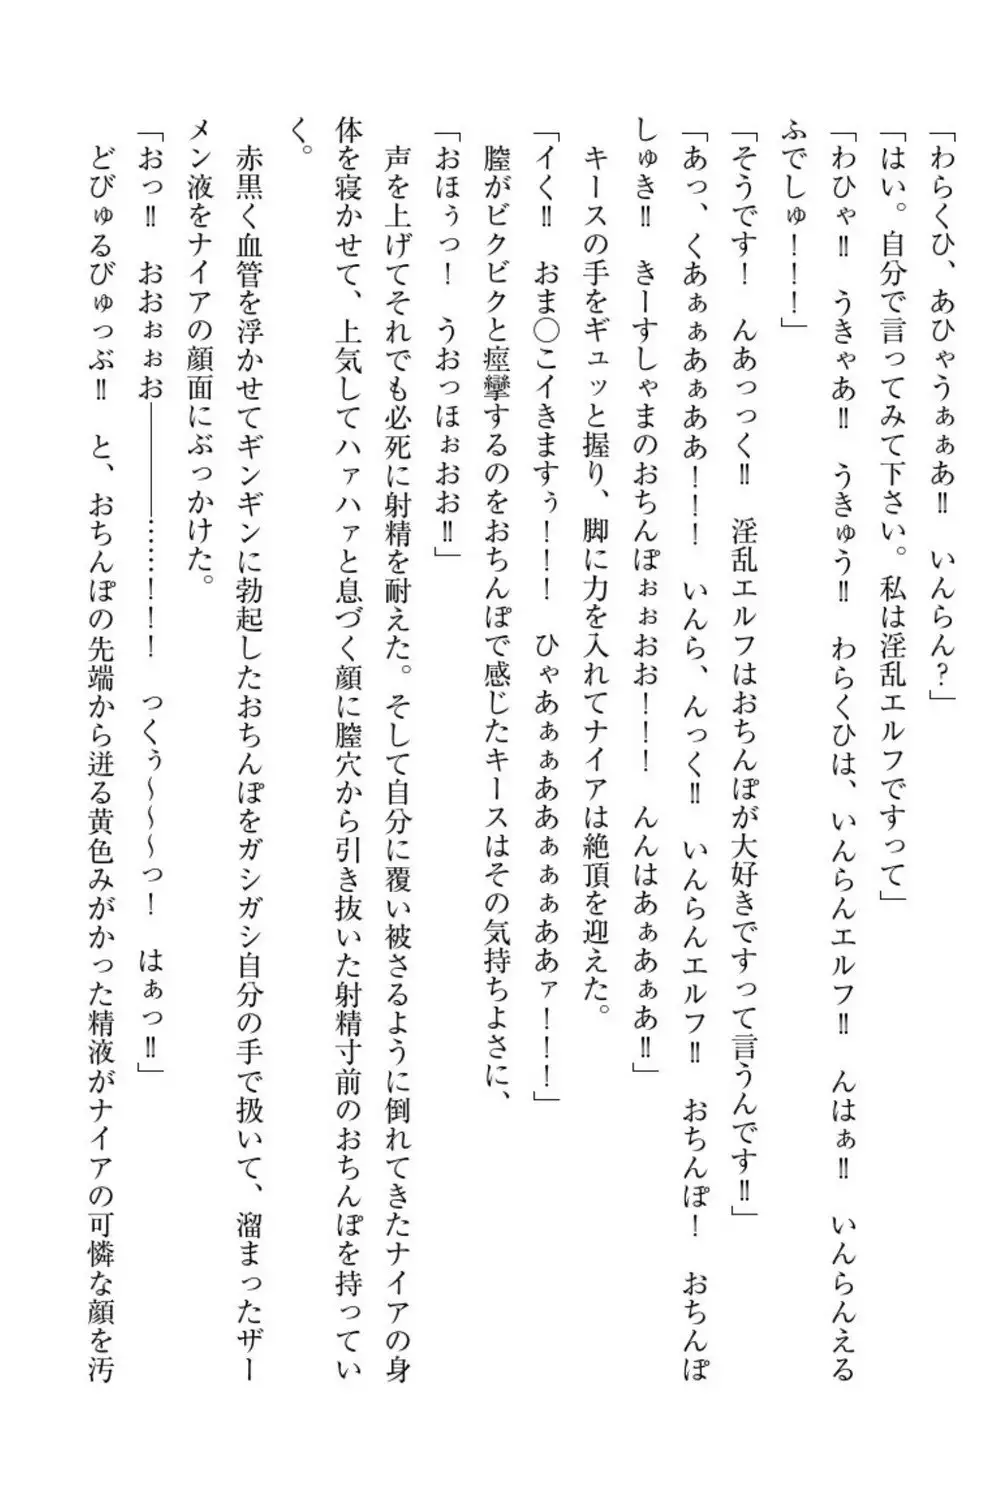 「わらくひ、あひゃうぁぁあ‼　いんらん？」
「はい。自分で言ってみて下さい。私は淫乱エルフですって」
「わひゃ‼　うきゃあ‼　うきゅう‼　わらくひは、いんらんエルフ‼　んはぁ‼　いんらんえる
ふでしゅ！！！」
「そうです！　んあっっく‼　淫乱エルフはおちんぽが大好きですって言うんです‼」
「あっ、くあぁぁあぁああ！！！　いんら、んっく‼　いんらんエルフ‼　おちんぽ！　おちんぽ
しゅき‼　きーすしゃまのおちんぽぉぉおお！！！　んんはあぁあぁあ‼」
　キースの手をギュッと握り、脚に力を入れてナイアは絶頂を迎えた。
「イく‼　おま〇こイきますぅ！！！　ひゃあぁぁああぁぁぁああァ！！！」
　膣がビクビクと痙攣するのをおちんぽで感じたキースはその気持ちよさに、
「おほぅっ！　うおっほぉおお‼」
　声を上げてそれでも必死に射精を耐えた。そして自分に覆い被さるように倒れてきたナイアの身
体を寝かせて、上気してハァハァと息づく顔に膣穴から引き抜いた射精寸前のおちんぽを持ってい
く。
　赤黒く血管を浮かせてギンギンに勃起したおちんぽをガシガシ自分の手で扱いて、溜まったザー
メン液をナイアの顔面にぶっかけた。
「おっ‼　おおぉぉお――――……！！！　っくぅ～～～っ！　はぁっ‼」
　どびゅるびゅっぶ‼　と、おちんぽの先端から迸る黄色みがかった精液がナイアの可憐な顔を汚